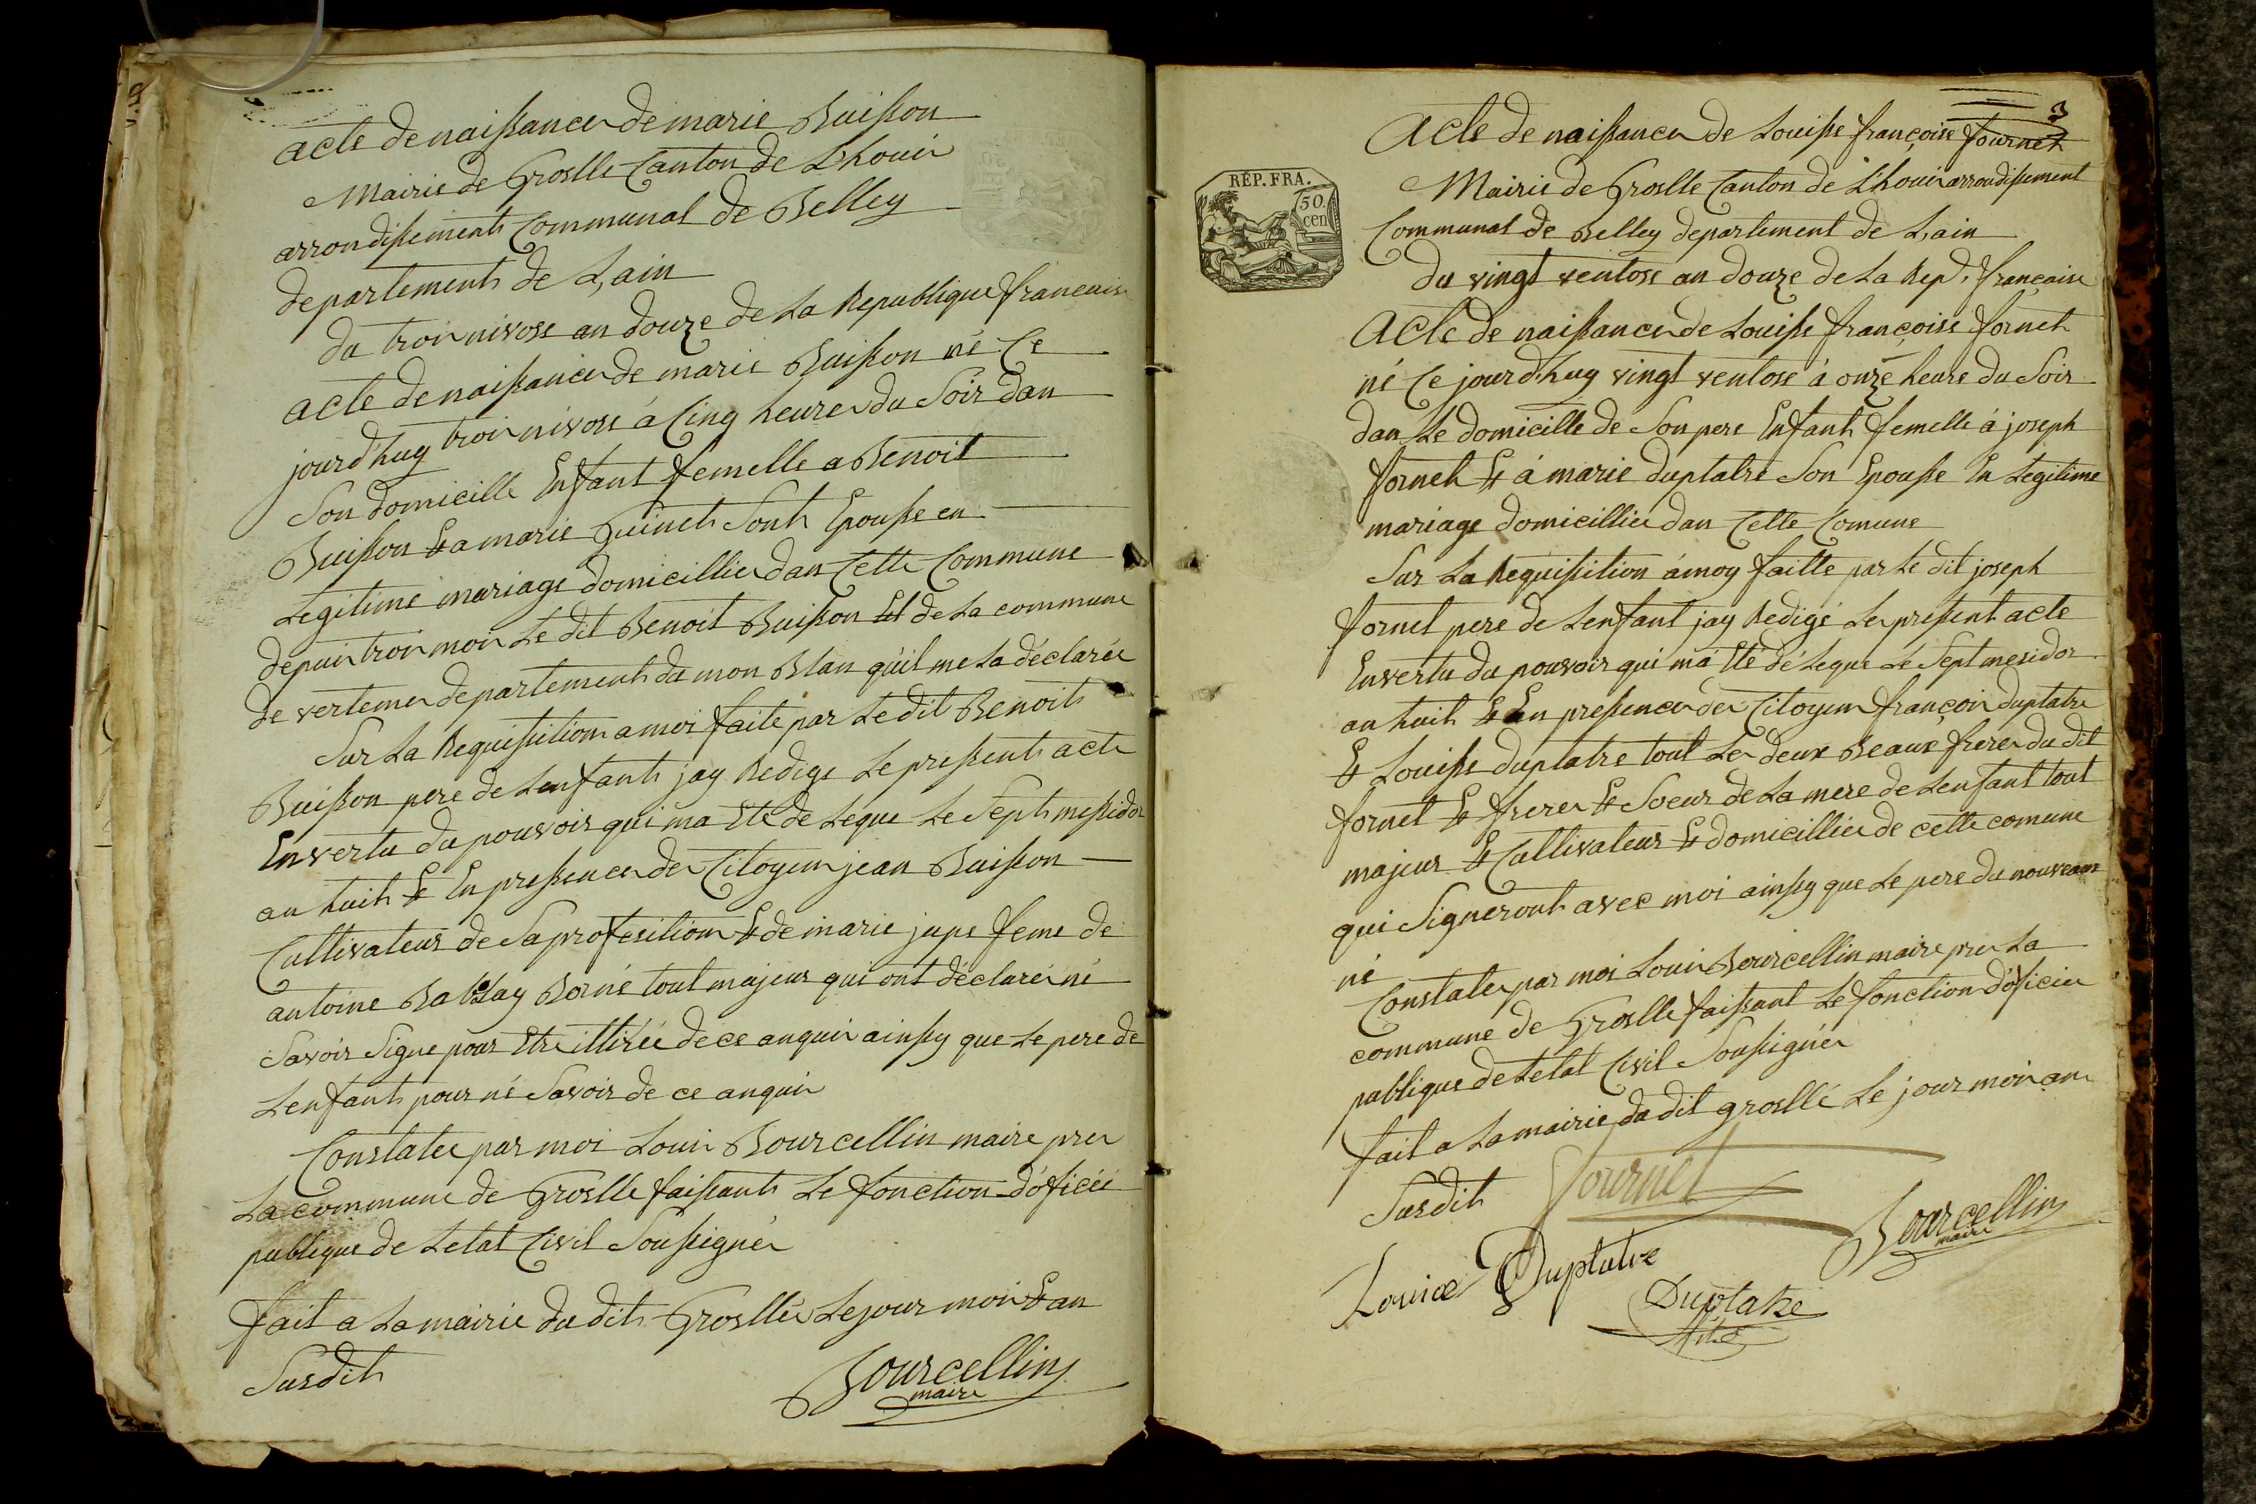 acte de naissance de marie Buisson
Mairie de Groslle Canton de Lhouis
arrondissement Communal de Belley
departement de L,ain
du trois nivose an douze de La Republique francaise
acte de naissance de marie Buisson né Ce
jourdhuy trois nivose á Cinq heures du Soir dan
Son domicille Enfant femelle a Benoit
Buisson Et a marie Guinet Sont Epousse en
Legitime mariage domicilliés dan Cette Commune
depuis trois mois Le dit Benoit Buisson Est de La commune
de vertemes departement du mon Blan quil me La déclarée
Sur La Requissition a moi faite par Le dit Benoit
Buisson pere de Lenfant jay Redige Le pressent acte
En vertu du pouvoir qui ma Eté de Legue Le Sept messidor
an huit Et En pressence des Citoyens jean Buisson
Cultivateur de Sa profesition Et de marie jupe feme de
antoine Borné tout majeur qui ont déclaré né
Savoir Signe pour Etre illitée de ce anquis ainssy que Le pere de
Lenfant pour né Savoir de ce anquis
Constater par moi Louis Bourcellin maire pres
La commune de Groslle faissant Le fonction d'óficié
publique de Letat Civil Soussignér
fait a La mairie du dit Grosllés Le jour mois Et an
Susdit
Bourcellin
maire
3
Acte de naissance de Louisse françoise fournet
RÉP. FRA.
50.
cen
Mairie de Groslle Canton de Lhouis arrondissement
Communal de Belley departement de L,ain
du vingt ventose an douze de La Rep. française
Acte de naissance de Louisse françoise fornet
né Ce jourd'huy vingt ventose á onze heure du Soir
dan Le domicille de Son pere Enfant femelle á joseph
fornet Et á marie duplatre Son Epousse En Legitime
mariage domicilliés dan Cette Comune
Sur La Requissition ámoy faitte par Le dit joseph
fornet pere de Lenfant jay Redigé Le pressent acte
En vertu du pouvoir qui má Eté dé Legue Le Sept mesidor
an huit Et En pressence des Citoyens françois duplatre
Et Louisse duplatre tout Les deux Beaux freres du dit
fornet Et freres Et Soeur de La mere de Lenfant tout
majeur Et Cultivateur Et domicilliés de cette comune
qui Signeront avec moi ainssy que Le pere du nouveaux
né
Constater par moi Louis Bourcellin maire pres La
commune de Groslle faissant Le fonction d'óficies
publique de Letat Civil Soussignér
fait a La mairie du dit grosllé Le jour mois an
Susdit
Fournet
Bourcellin
maire
Louise Duplatre
Duplatre